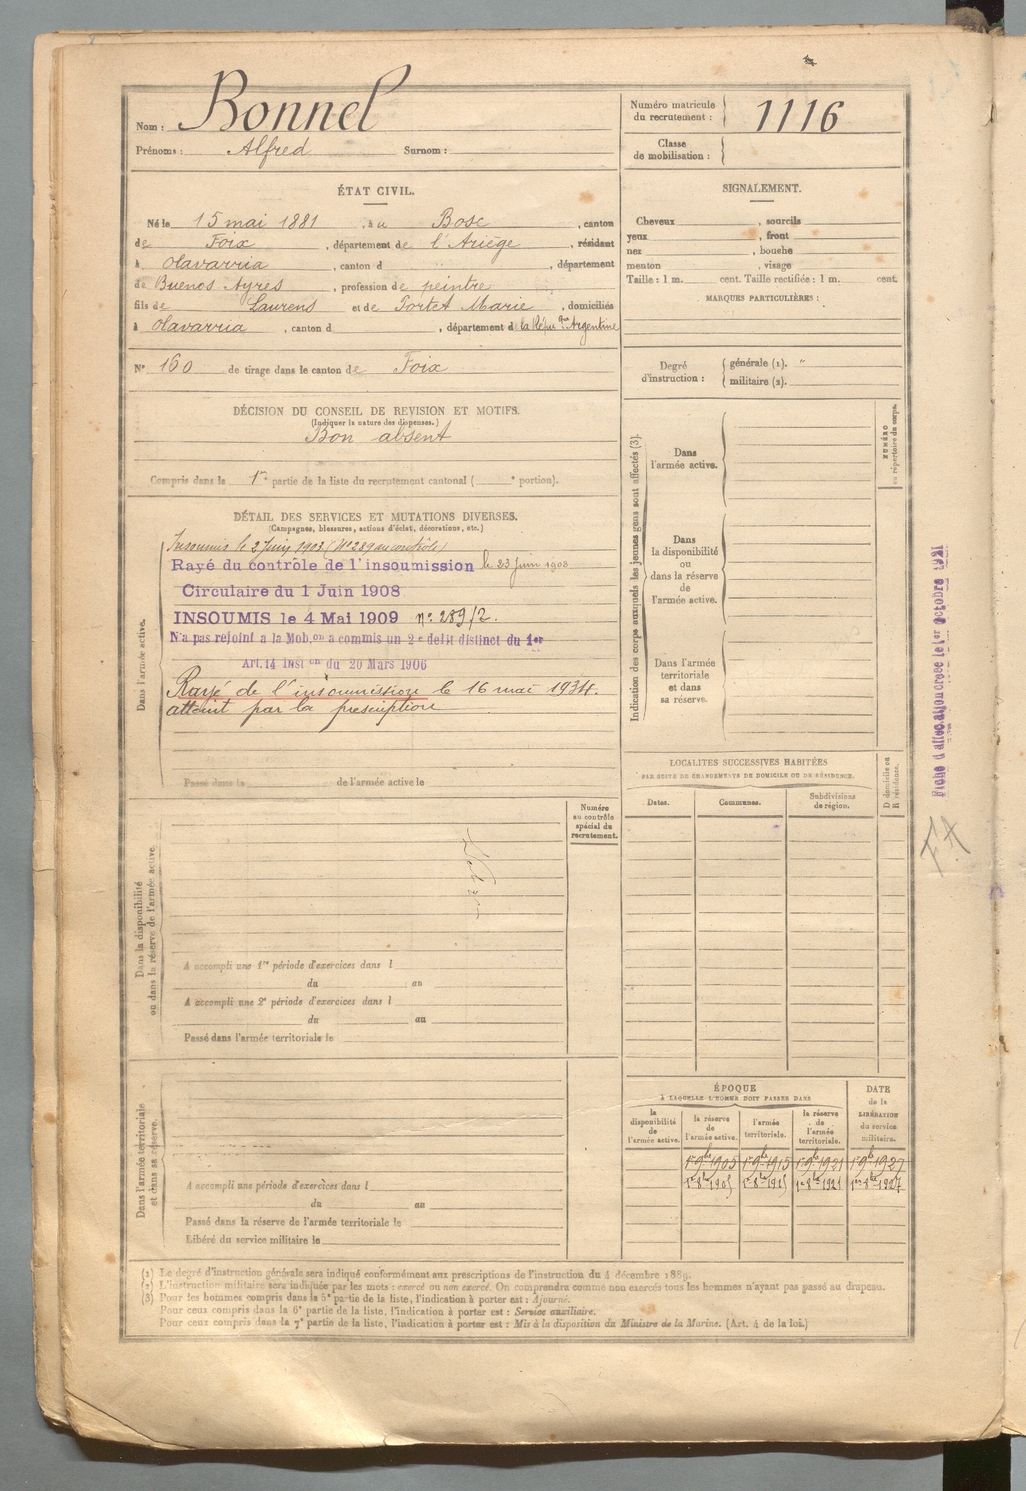 Nom : Bonnel
Prénoms : Alfred Surnom :
Numéro matricule
du recrutement : 1116
Classe
de mobilisation :
ÉTAT CIVIL.
Né le 15 mai 1881, à u Bosc, canton
de Foix, département de l'Ariège, résidant
à Olavarria, canton d , département
de Buenos Ayres, profession de peintre
fils de Laurens et de Fortet Marie, domiciliés
à Olavarria, canton d , département d la Répu que Argentine
N° 160 de tirage dans le canton de Foix
SIGNALEMENT.
Cheveux , sourcils
yeux , front
nez , bouche
menton , visage
Taille : 1 m. cent. Taille rectifiée : 1 m. cent.
MARQUES PARTICULIÈRES :
Degré
d'instruction :
générale (1). "
militaire (2).
DÉCISION DU CONSEIL DE REVISION ET MOTIFS.
(Indiquer la nature des dispenses.)
Bon absent
Compris dans la 1re partie de la liste du recrutement cantonal ( e portion).
DÉTAIL DES SERVICES ET MUTATIONS DIVERSES.
(Campagnes, blessures, actions d'éclat, décorations, etc.)
Dans l'armée active.
Insoumis le 2 Juin 1903 (N° 289 au contrôle)
Rayé du contrôle de l'insoumission le 23 juin 1908
Circulaire du 1 Juin 1908
INSOUMIS le 4 Mai 1909 n° 289/2.
N'a pas rejoint a la Mob.on a commis un 2e delit distinct du 1er
Art. 14 Inst on du 20 Mars 1906
Rayé de l'insoumission le 16 mai 1934.
atteint par la prescription
Passé dans la de l'armée active le
Indication des corps auxquels les jeunes gens sont affectés (3).
Dans
l'armée active.
Dans
la disponibilité
ou
dans la réserve
de
l'armée active.
Dans l'armée
territoriale
et dans
sa réserve.
NUMÉRO
au répertoire du corps.
Fiche d'affectation créée le 1er Octobre 1921
FA
LOCALITÉS SUCCESSIVES HABITÉES
PAR SUITE DE CHANGEMENTS DE DOMICILE OU DE RÉSIDENCE.
Dates. Communes. Subdivisions
de région.
D domicile ou
R résidence.
Numéro
au contrôle
spécial du
recrutement.
Dans la disponibilité
ou dans la réserve de l'armée active.
A accompli une 1re période d'exercices dans l
du au
A accompli une 2e période d'exercices dans l
du au
Passé dans l'armée territoriale le
Dans l'armée territoriale
et dans sa réserve.
A accompli une période d'exercices dans l
du au
Passé dans la réserve de l'armée territoriale le
Libéré du service militaire le
ÉPOQUE
À LAQUELLE L'HOMME DOIT PASSER DANS
la
disponibilité
de
l'armée active.
la réserve
de
l'armée active.
l'armée
territoriale.
la réserve
de
l'armée
territoriale.
DATE
de la
LIBÉRATION
du service
militaire.
1er 9bre 1905 1er 9bre 1915 1er 9bre 1921 1er 9bre 1927
1er 8bre 1905 1er 8bre 1915 1er 8bre 1921 1er 8bre 1927
(1) Le degré d'instruction générale sera indiqué conformément aux prescriptions de l'instruction du 4 décembre 1889.
(2) L'instruction militaire sera indiquée par les mots : exercé ou non exercé. On comprendra comme non exercés tous les hommes n'ayant pas passé au drapeau.
(3) Pour les hommes compris dans la 5e partie de la liste, l'indication à porter est : Ajourné.
Pour ceux compris dans la 6e partie de la liste, l'indication à porter est : Service auxiliaire.
Pour ceux compris dans la 7e partie de la liste, l'indication à porter est : Mis à la disposition du Ministre de la Marine. (Art. 4 de la loi.)